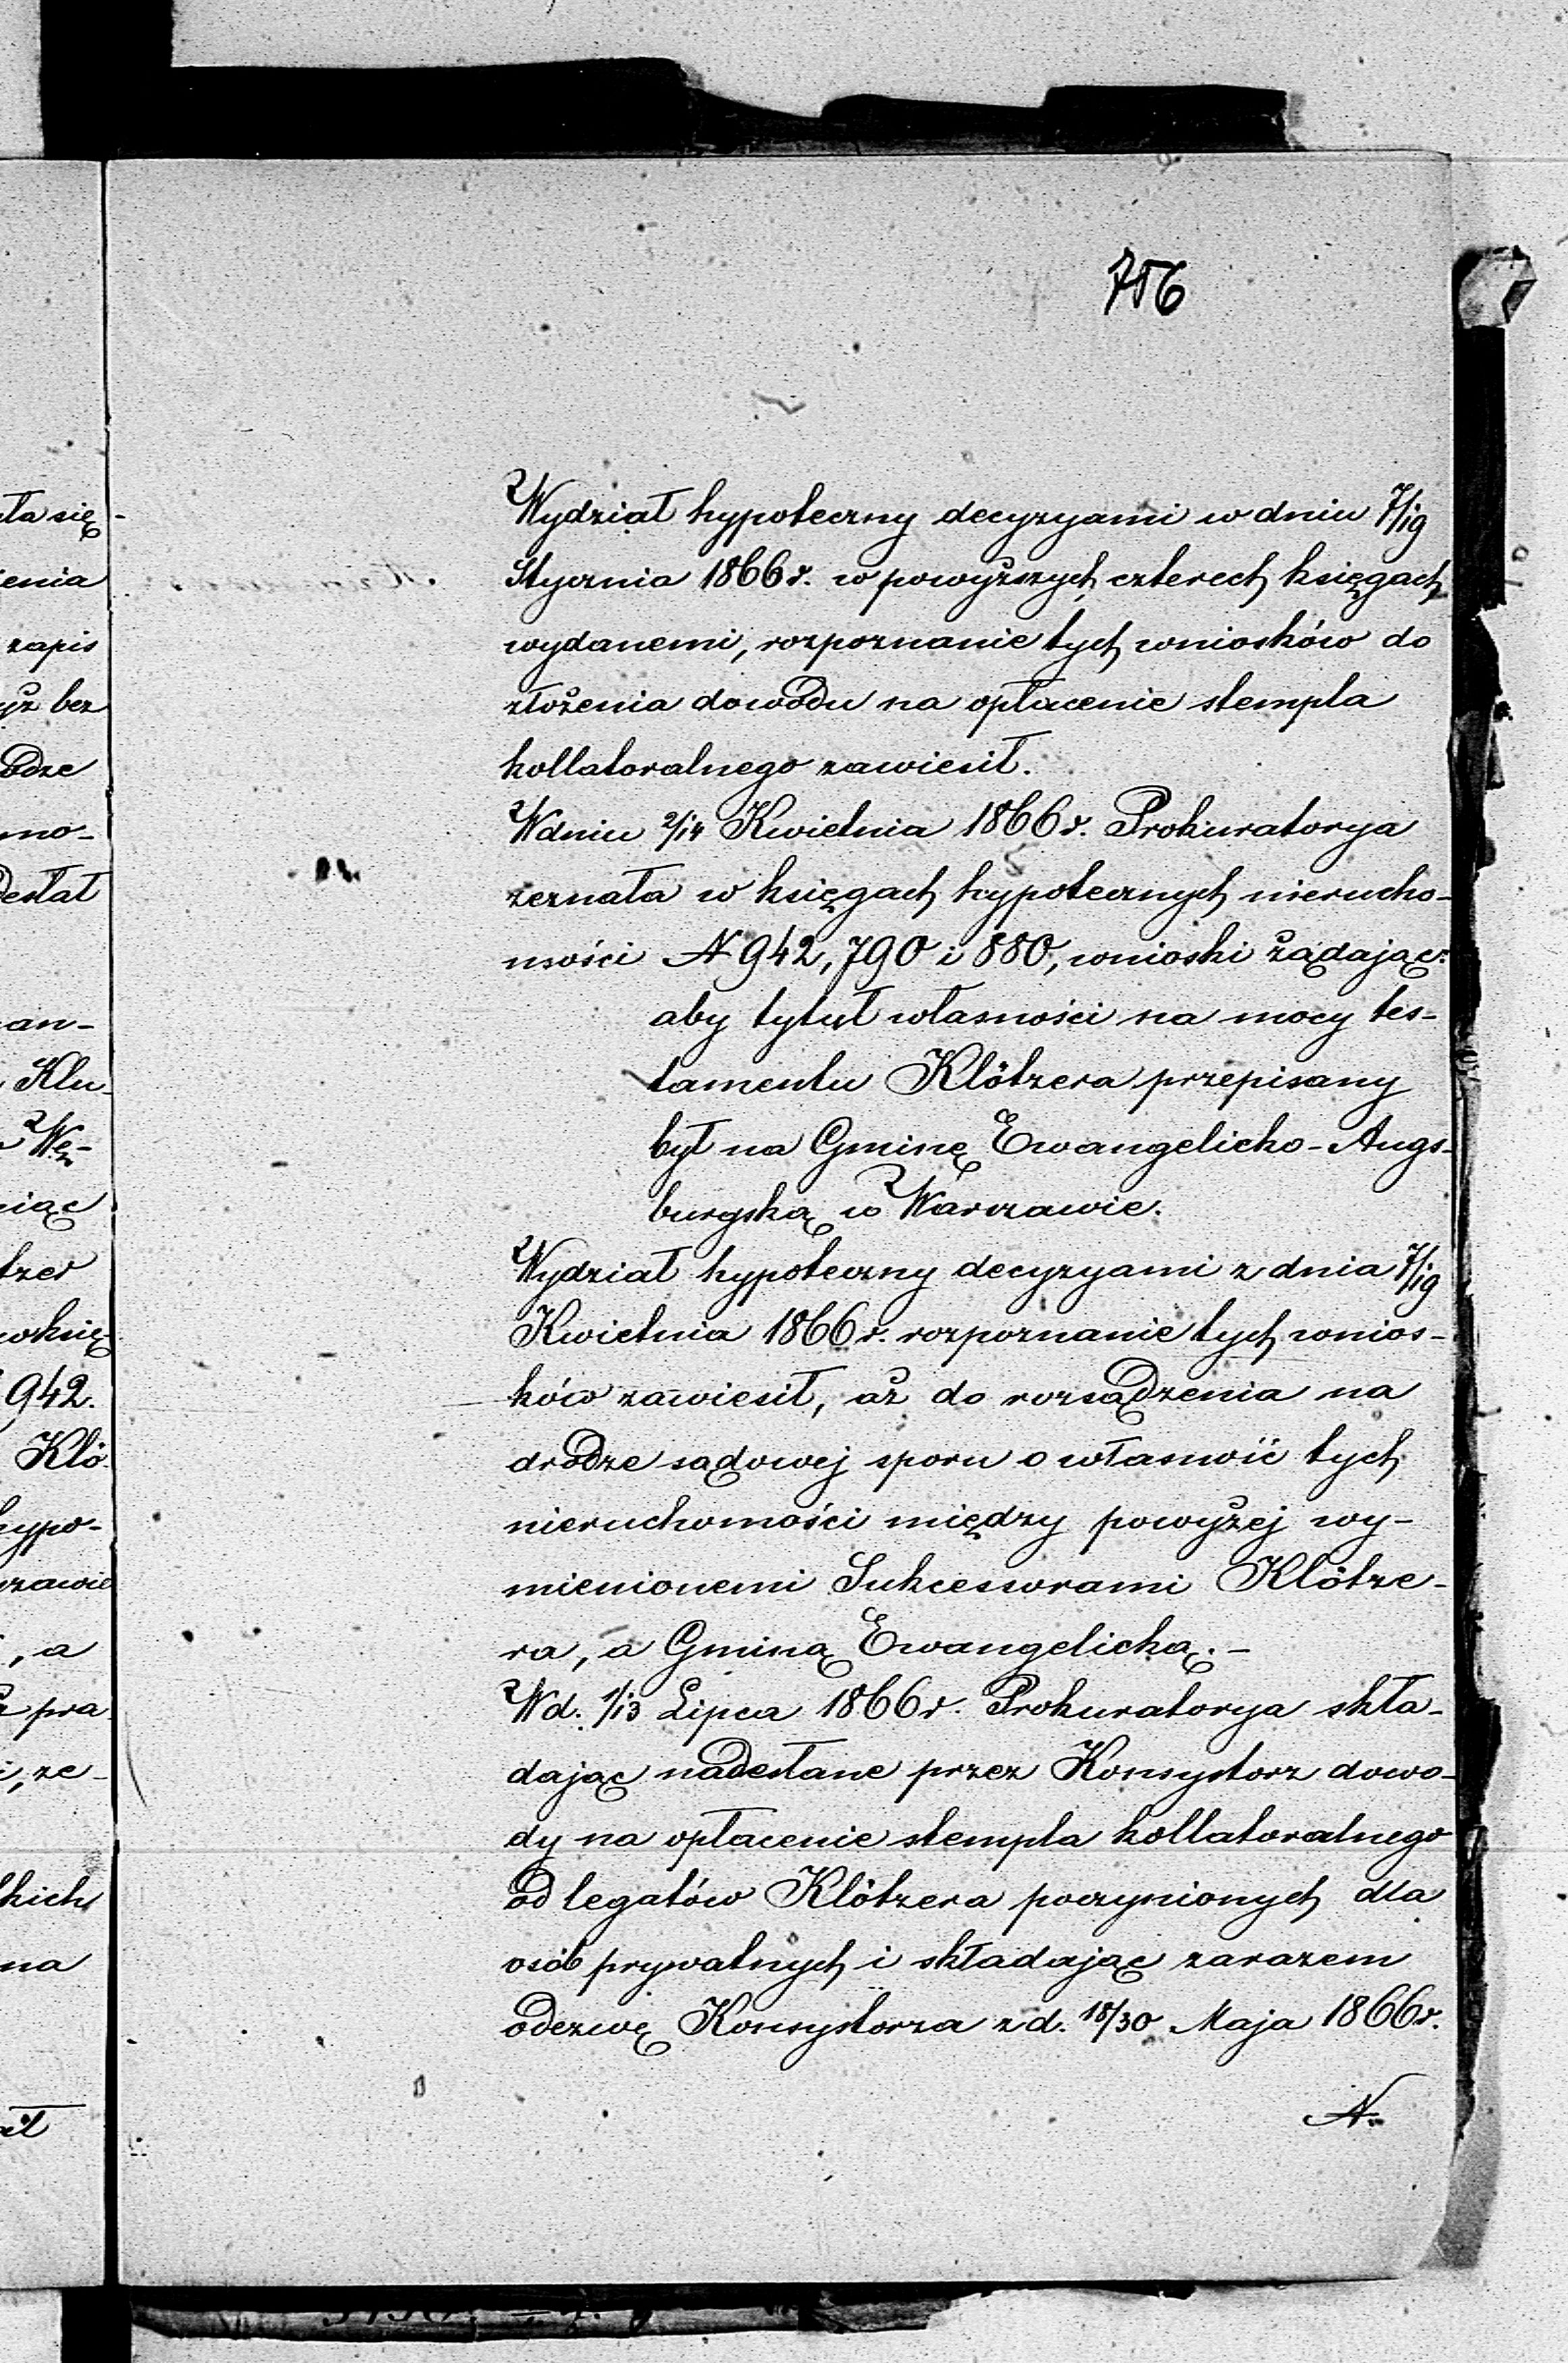 756
Wydział hypoteczny decyzyami w dniu 7/19
Stycznia 1866 r. w powyższych czterech księgach
wydanemi, rozpoznanie tych wniosków do
złożenia dowodu na opłacenie stempla
kollateralnego zawiesił.
W dniu 2/14 Kwietnia 1866 r. Prokuratorya
zeznała w księgach hypotecznych nierucho-
mości N 942, 790 i 880, wnioski żądając:
aby tytuł własności na mocy tes-
tamentu Klötzera przepisany
był na Gminę Ewangelicko-Augs-
burgską w Warszawie.
Wydział hypoteczny decyzyami z dnia 7/19
Kwietnia 1866 r. rozpoznanie tych wnios-
ków zawiesił, aż do rozsądzenia na
drodze sądowej sporu o własność tych
nieruchomości między powyżej wy-
mienionemi Sukcessorami Klötze-
ra, a Gminą Ewangelicką.-
W d. 1/13 Lipca 1866 r. Prokuratorya skła-
dając nadesłane przez Konsystorz dowo-
dy na opłacenie stempla kollateralnego
od legatów Klötzera poczynionych dla
osób prywatnych i składając zarazem
odezwę Konsystorza z d. 18/30 Maja 1866 r.
N.
ła się
ienia
zapis
yż bez
odze
mo-
desłał
an-
Klu-
Wę-
niąc
tzer
w księ-
942.
Klö-
hypo-
szawie
, a
pra-
i, ze-
kich
na